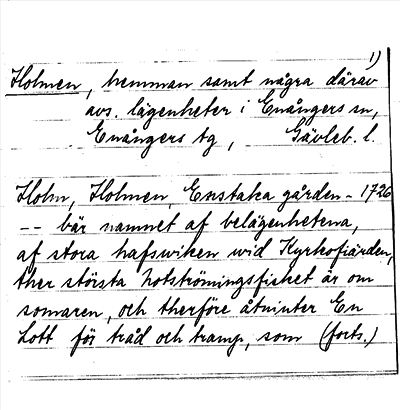 1)
Holmen, hemman samt några därav
avs. lägenheter i Enångers sn,
Enångers tg, Gävleb. l.
Holm, Holmen, Enstaka gården - 1726
-- bär namnet af belägenhetena,
af stora hafswiken wid Kyrkofiärden,
ther största notströmingsfisket är om
somaren, och therföre åtniuter En
Lott för tråd och tramp, som (forts.)